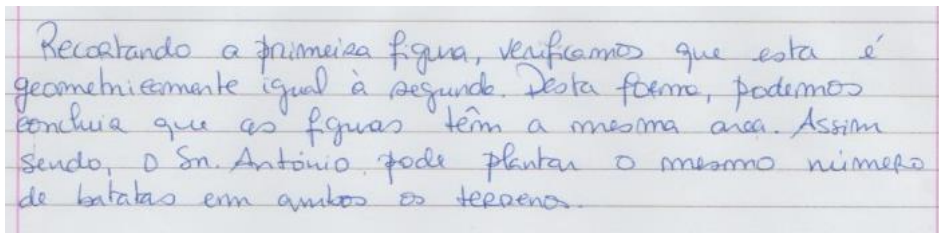 Recortando a primeira figura, verificamos que esta é
geometricamente igual à segunda. Desta forma, podemos
concluir que as figuras têm a mesma área. Assim
sendo, o Sr. António pode plantar o mesmo número
de batatas em ambos os terrenos.